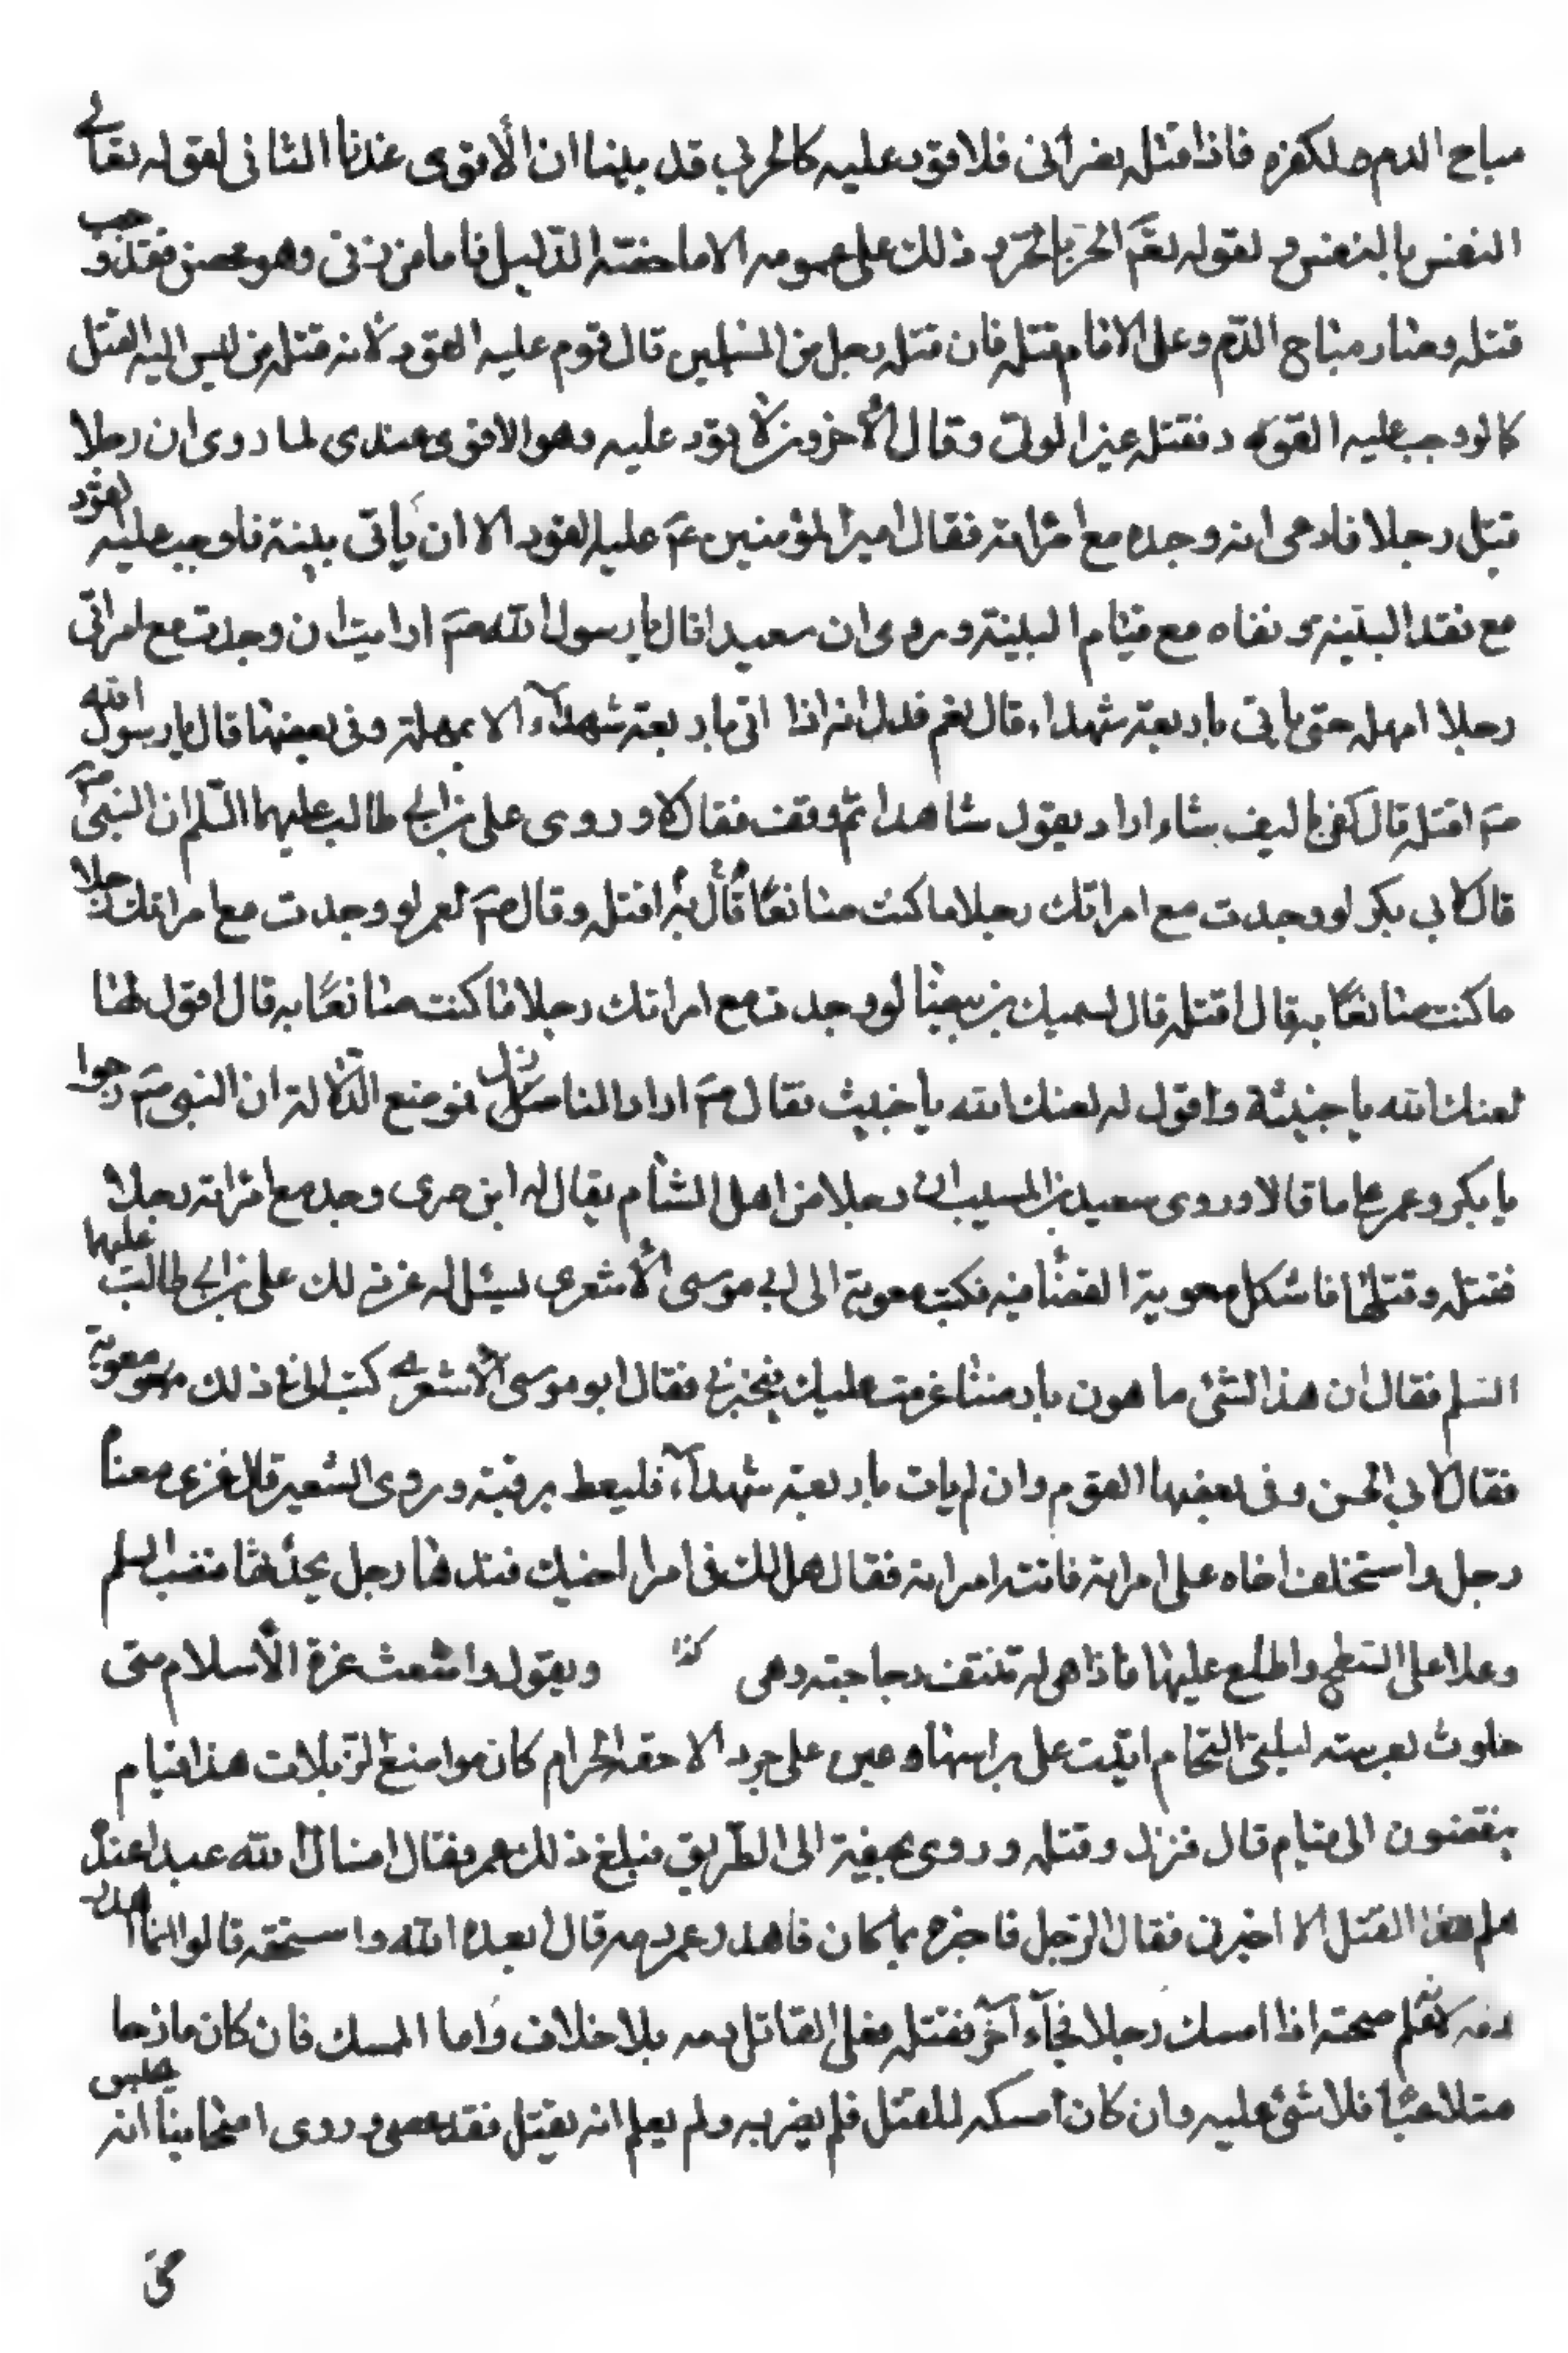 مباح الدم ولكفره فاذا قتله نصراني فلا قود عليه كالحربي قد بينا ان الأقوى عندنا الثاني لقوله تعالى
النفس بالنفس ولقوله تعم الحر بالحر وذلك على عمومه الا ما خصته الدليل فاما من زنى وهو محصن فقد وجب
قتله وصار مباح الدم وعلى الامام قتله فان قتله رجل من المسلمين قال قوم عليه القود لأنه قتله من ليس اليه القتل
كما لو وجب عليه القود فقتله غير الولي وقال الأخرون لا قود عليه وهو الاقوى عندى لما روى ان رجلا
قتل رجلا فادعى انه وجده مع امرأته فقال امير المؤمنين عم عليه القود الا ان يأتى ببينة فاوجب عليه القود
مع فقد البينة ونفاه مع قيام البينة وروى ان سعيدا قال يا رسول الله صم ارايت ان وجدت مع امراتى
رجلا امهله حتى ياتى باربعة شهداء قال نعم فدل انه اذا اتى باربعة شهدآء لا يمهله وفى بعضها قال يا رسول الله
صم اقتله قال كفى بالسيف شاء اراد يقول شاهدا ثم وقف فقال لا وروى على بن ابى طالب عليهما السلم ان النبى صم
قال لابى بكر لو وجدت مع امراتك رجلا ما كنت صانعًا قال اقتله وقال صم لعمر لو وجدت مع امراتك رجلا
ما كنت صانعًا به قال اقتله قال لسهيل بن بيضا لو وجدت مع امراتك رجلا ما كنت صانعًا به قال اقول لها
لعنك الله يا خبيثة واقول له لعنك الله يا خبيث فقال صم اراد المناضل نزل موضع الدلالة ان النبى صم رجوا
يا بكر وعمر على ما قالا وروى سعيد بن المسيب ان رجلا من اهل الشأم يقال له ابن حرى وجد مع امرأته رجلا
فقتله وقتلها فاشكل معوية القضأ فيه فكتب معوية الى ابى موسى الأشعرى ليسئل له عن ذلك على بن ابى طالب عليهما
السلم فقال ان هذا الشئ ما هو بارضنا عزمت عليك لتخبرنى فقال ابو موسى الأشعرى كتب الى فى ذلك معوية
فقال لابى الحسن وفى بعضها القوم وان لم يات باربعة شهدآء فليعط برقبته وروى الشعبى قال غزى معنا
رجل واستخلف اخاه على امراته فاتته امراته فقال هل لك فى امراة اخيك عندها رجل يحدثها فنصب السلم
وعلا على السطح واطلع عليها فاذا هى له تنتف دجاجته وهى كذا ويقول واشعث غرة الأسلام متى
خلوت بعرسه ليلة التمام ابيت على برائبها وعين على جرد الاحقه الحرام كان مواضع الربلات هذا قيام
ينقضون الى قيام قال فنزل وقتله وروى بجيفته الى الطريق فبلغ ذلك عمر فقال انشا الله عبدا عنده
علم هذا القتل الا اخبرنى فقال الرجل فاخبره بما كان فاهدر عمر دمه قال ابعده الله واستحقه قالوا انما اهدر
دمه لانه علم صحته اذا امسك رجلا فجآء آخر فقتله فعلى القاتل دمه بلا خلاف واما الممسك فان كان مازحا
متلاعبًا فلا شئ عليه وان كان امسكه للقتل فلم يضربه ولم يعلم انه يقتل فقد عصى وروى اصحابنا انه يحبس